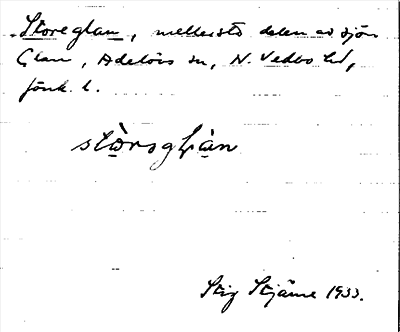 Storeglan, mellersta delen av sjön
Glan, Adelövs sn, N. Vedbo hd,
Jönk. l.
stòrsglàn
Stig Stjärne 1933.